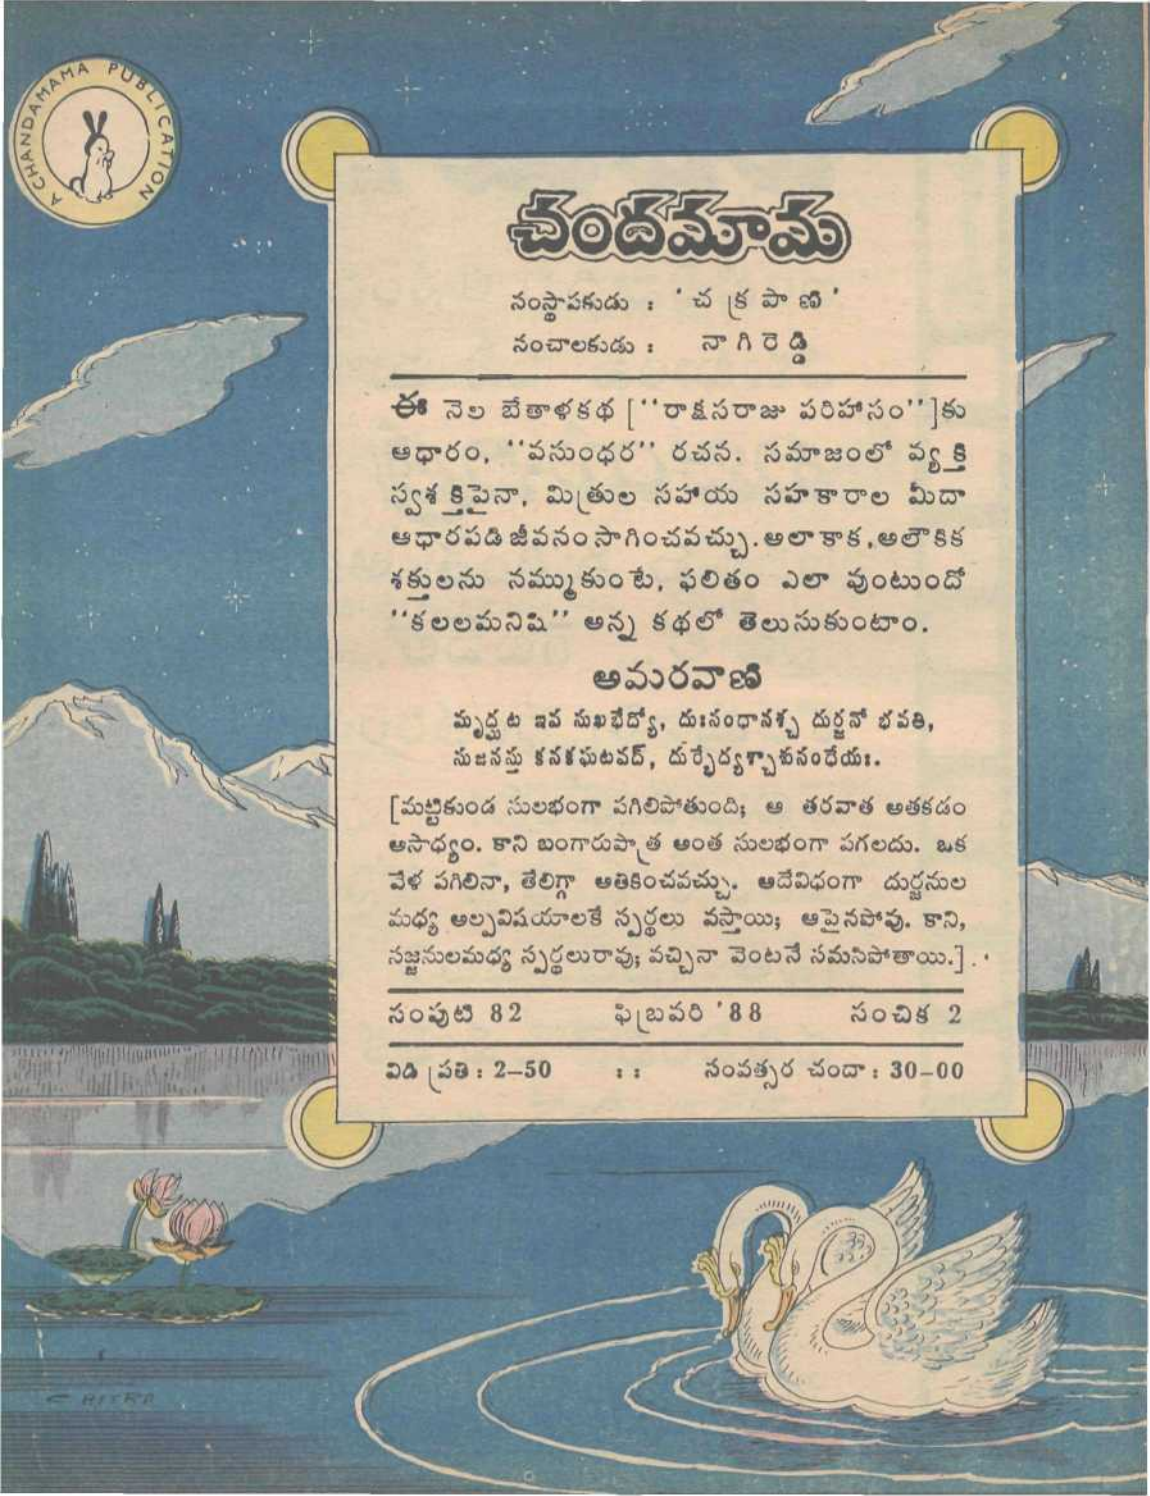 A CHANDAMAMA PUBLICATION
చందమామ
సంస్థాపకుడు : 'చక్రపాణి'
సంచాలకుడు : నాగిరెడ్డి
ఈ నెల బేతాళకథ [''రాక్షసరాజు పరిహాసం'']కు
ఆధారం, ''వసుంధర'' రచన. సమాజంలో వ్యక్తి
స్వశక్తిపైనా, మిత్రుల సహాయ సహకారాల మీదా
ఆధారపడి జీవనం సాగించవచ్చు. అలా కాక, అలౌకిక
శక్తులను నమ్ముకుంటే, ఫలితం ఎలా వుంటుందో
''కలలమనిషి'' అన్న కథలో తెలుసుకుంటాం.
అమరవాణి
మృద్ఘట ఇవ సుఖభేద్యో, దుఃసంధానశ్చ దుర్జనో భవతి,
సుజనస్తు కనకఘటవద్, దుర్భేద్యశ్చాశుసంధేయః.
[మట్టికుండ సులభంగా పగిలిపోతుంది; ఆ తరవాత అతకడం
అసాధ్యం. కాని బంగారుపాత్ర అంత సులభంగా పగలదు. ఒక
వేళ పగిలినా, తేలిగ్గా అతికించవచ్చు. అదేవిధంగా దుర్జనుల
మధ్య అల్పవిషయాలకే స్పర్థలు వస్తాయి; ఆపైనపోవు. కాని,
సజ్జనులమధ్య స్పర్థలురావు; వచ్చినా వెంటనే సమసిపోతాయి.]
సంపుటి 82 ఫిబ్రవరి '88 సంచిక 2
విడి ప్రతి : 2–50 : : సంవత్సర చందా : 30–00
CHITRA